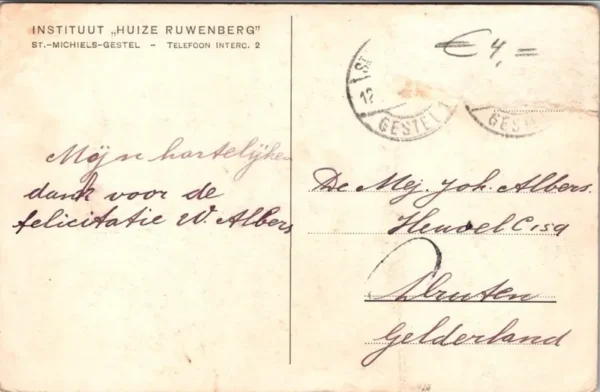 INSTITUUT „HUIZE RUWENBERG"
ST.-MICHIELS-GESTEL - TELEFOON INTERC. 2
€ 4,=
ST
12
GESTEL
GES
Mijn hartelijken
dank voor de
felicitatie W. Albers
De Mej. Joh. Albers.
Heuvel C 159
Druten
Gelderland